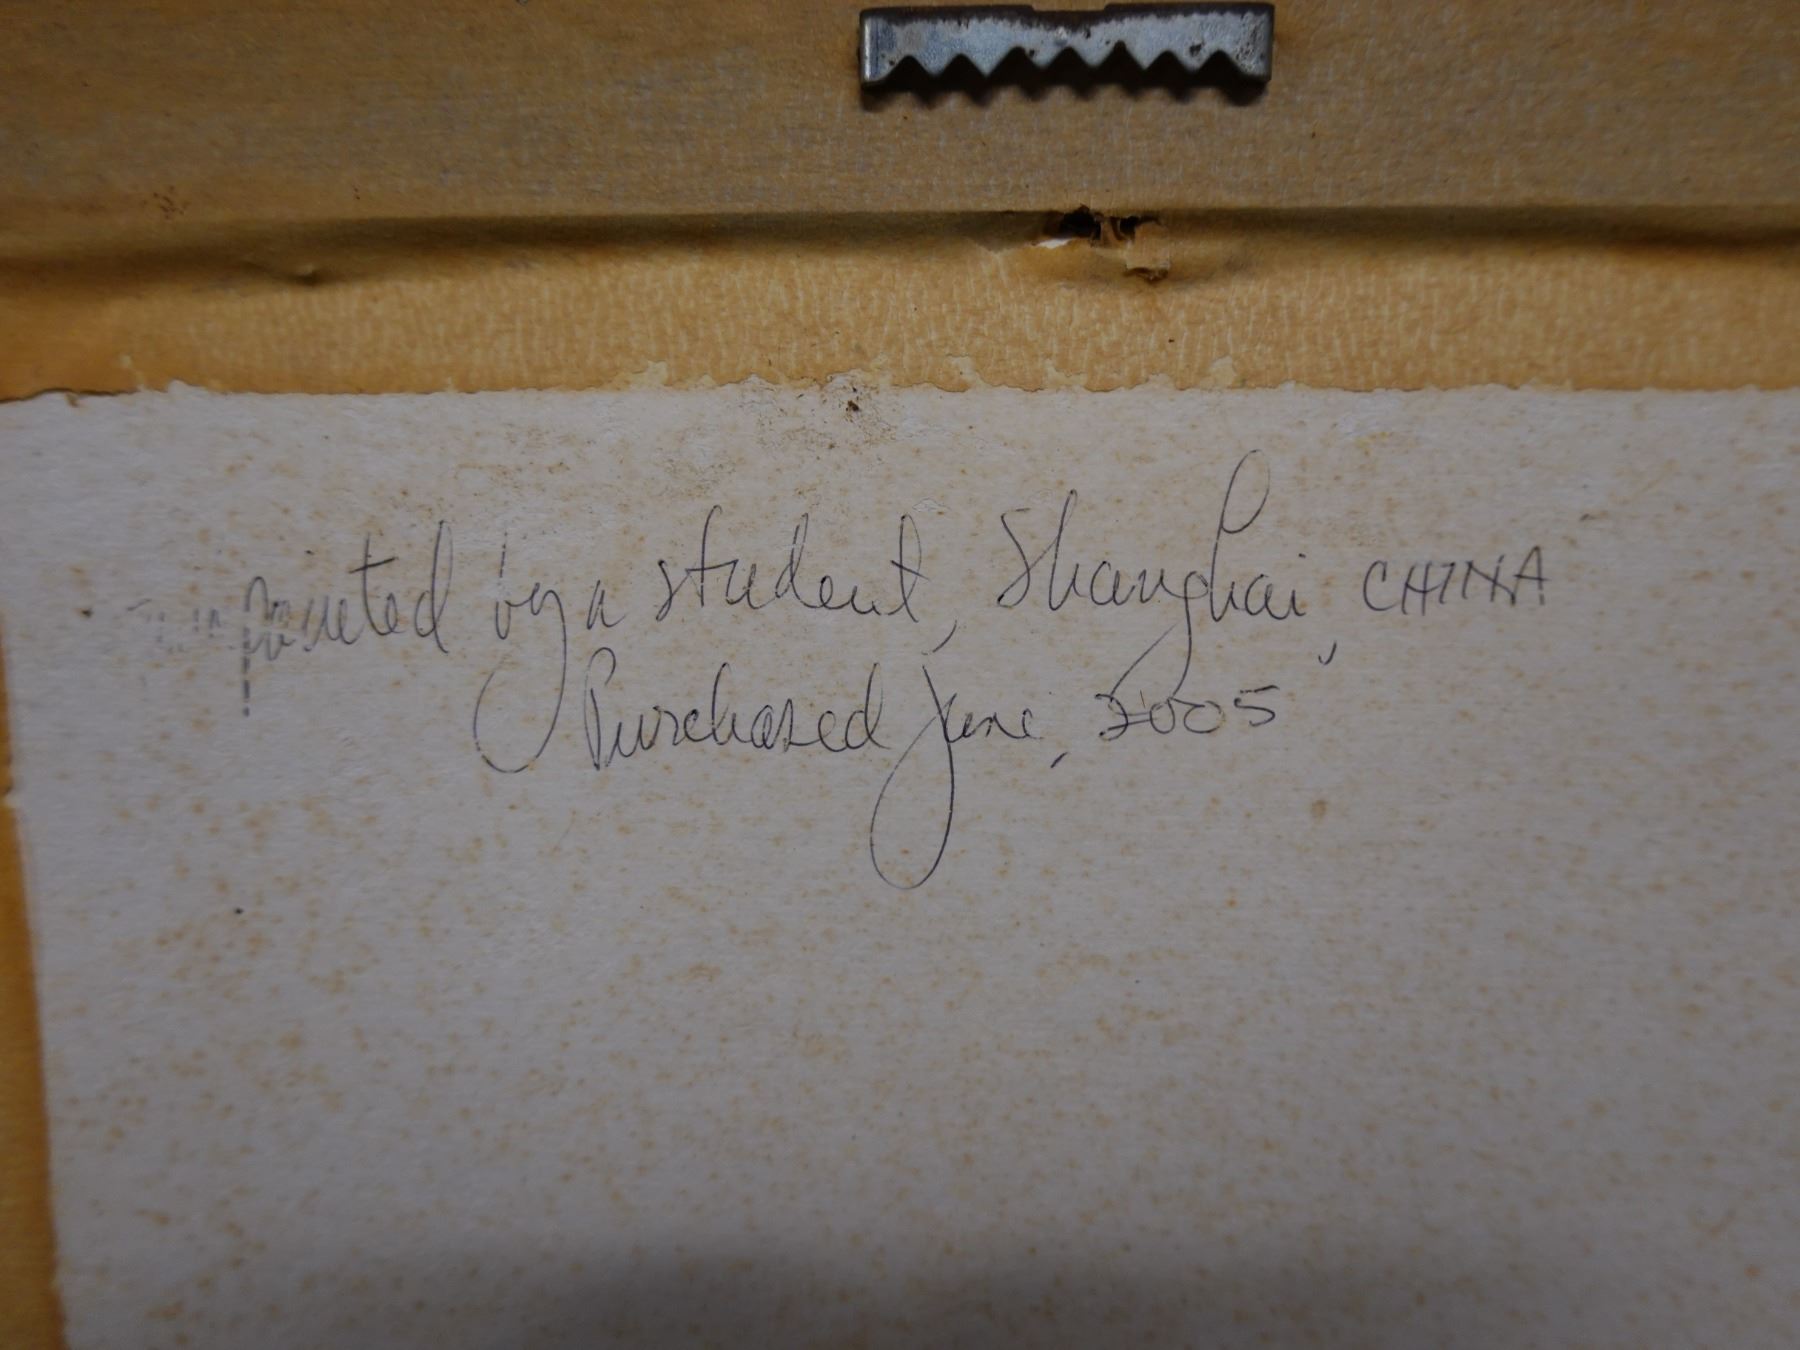 painted by a student, Shanghai, CHINA
Purchased June, 2005